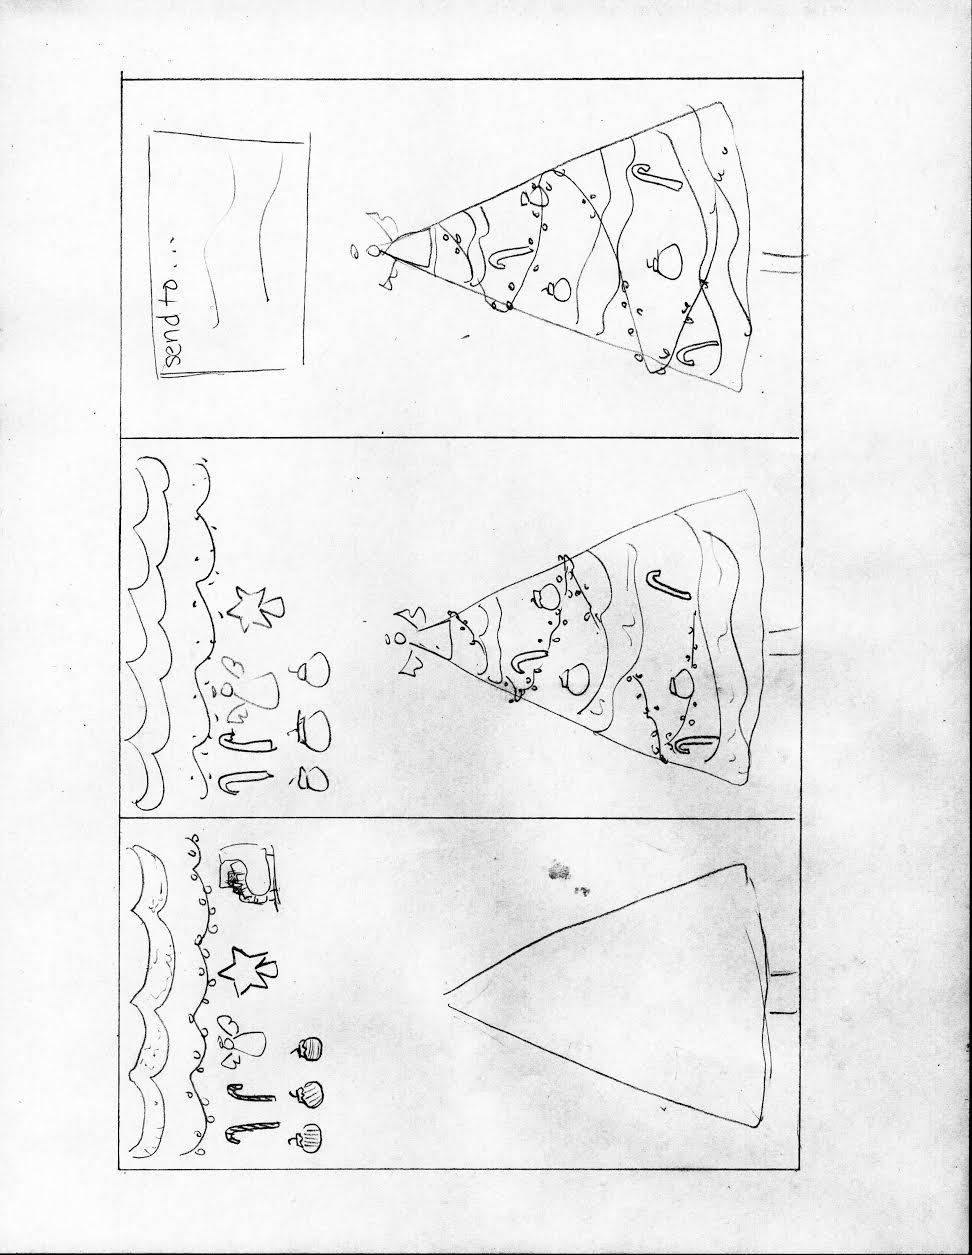 send to...